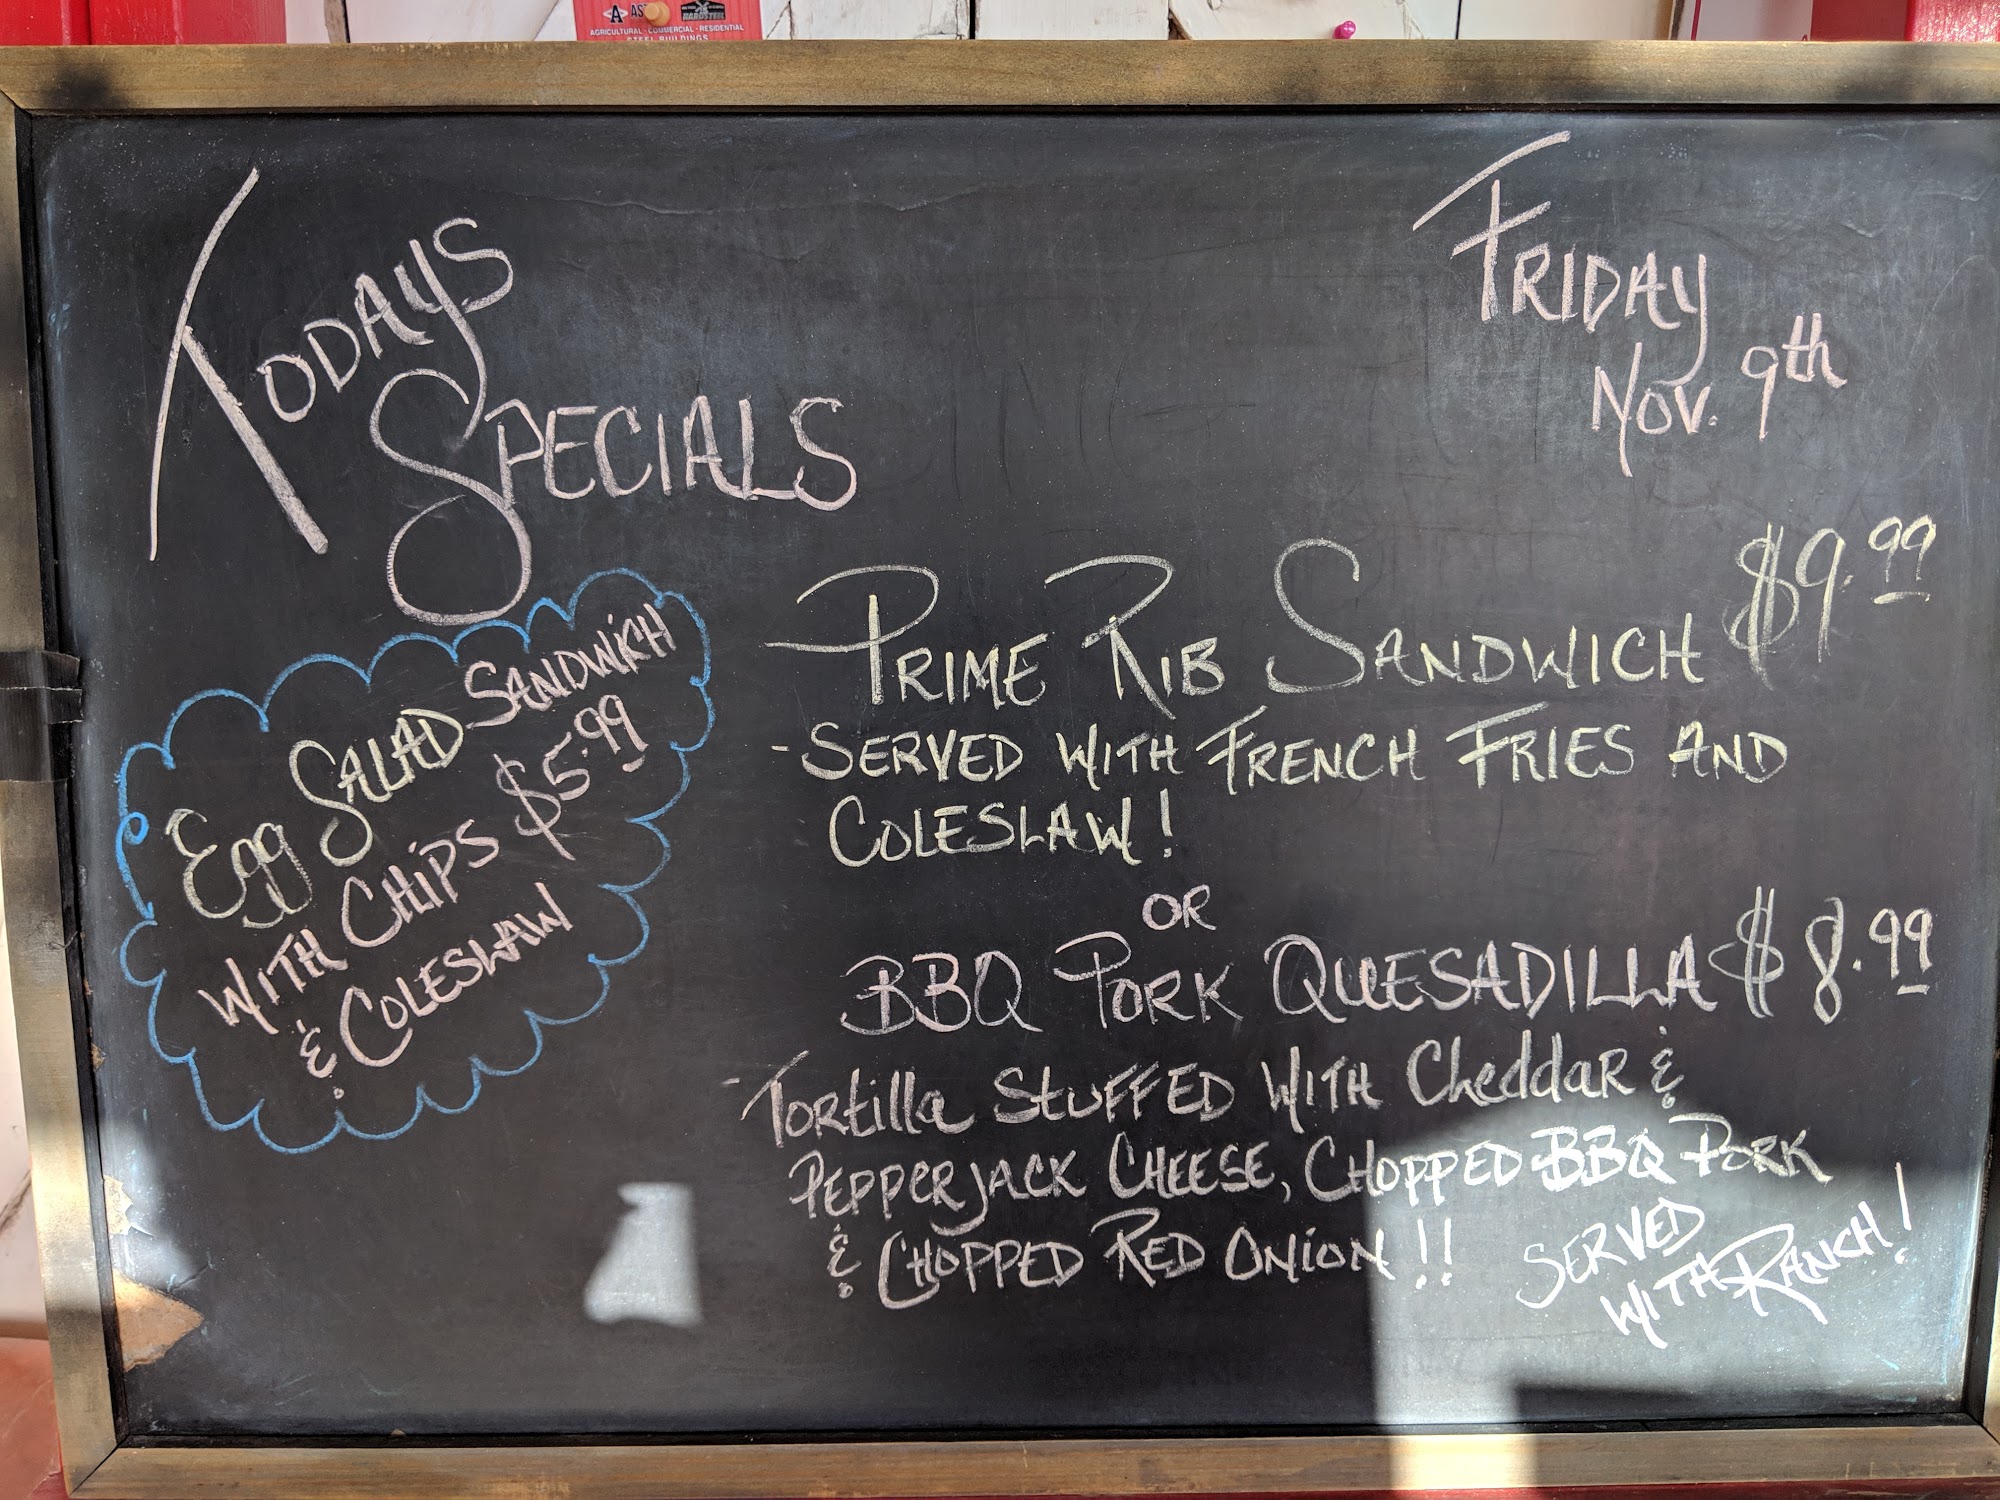 AGRICULTURAL - COMMERCIAL - RESIDENTIAL
STEEL BUILDINGS
TODAYS
SPECIALS
FRIDAY
NOV. 9th
EGG SALAD SANDWICH
WITH CHIPS $5.99
& COLESLAW
PRIME RIB SANDWICH $9.99
- SERVED WITH FRENCH FRIES AND
COLESLAW!
OR
BBQ PORK QUESADILLA $8.99
- TORtilla STUFFED WITH CHeddAR &
PEPPERJACK CHEESE, CHOPPED BBQ PORK
& CHOPPED RED ONION!!
SERVED
WITH RANCH!